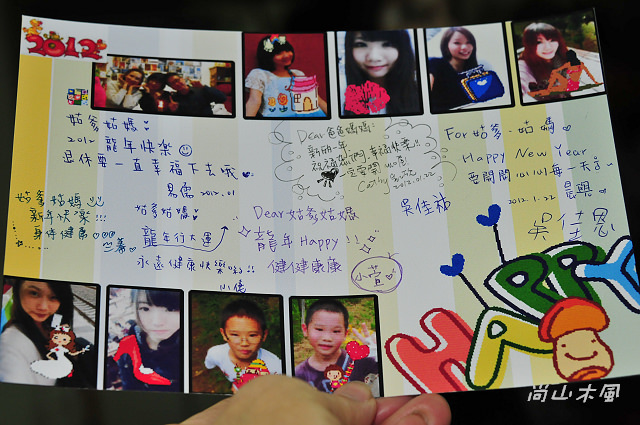 2012
姑爹姑媽
2012 龍年快樂
退休要一直幸福下去哦
易儒 2012.01
Dear 爸爸媽媽:
新的一年
祝福您們幸福快樂!!
一定要開心喔
Cathy
2012.01.22
For 姑爹、姑媽
Happy New Year
要開開心心每一天
2012.1.22
吳佳恩
吳佳祐
姑爹姑媽
新年快樂!!!
身体健康
姑爹姑媽
龍年行大運
永遠健康快樂喲!!
小儒
Dear 姑爹姑媽
龍年 Happy !!
健健康康
小萱
HAPPY
尚山木風